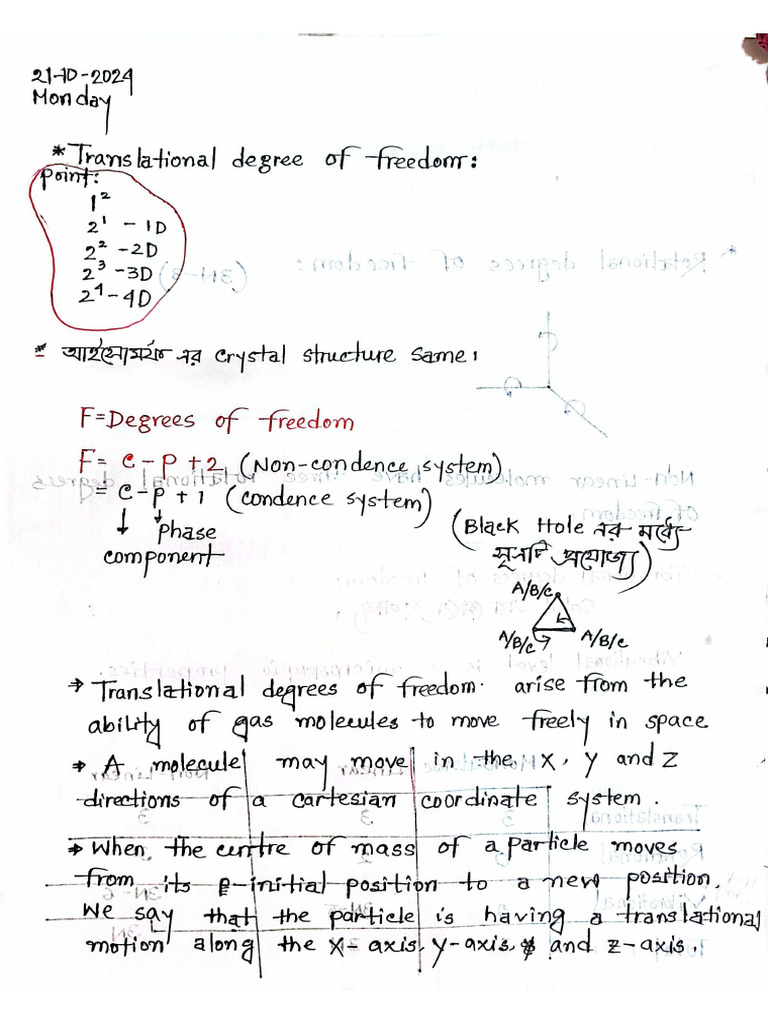 21-10-2024
Monday
* Translational degree of freedom:
point:
1²
2¹ - 1D
2² - 2D
2³ - 3D
2⁴ - 4D
* এর crystal structure same।
F= Degrees of freedom
F= C - P + 2 (Non-condence system)
= C - P + 1 (condence system)
↓ ↓
phase
component
(Black Hole এর মধ্যে
সূত্রটি প্রযোজ্য)
A/B/C
A/B/C A/B/C
→ Translational degrees of freedom. arise from the
ability of gas molecules to move freely in space
→ A molecule may move in the X, Y and Z
directions of a cartesian coordinate system.
→ When the centre of mass of a particle moves
from its initial position to a new position.
We say that the particle is having a translational
motion along the X-axis, Y-axis, and Z-axis.